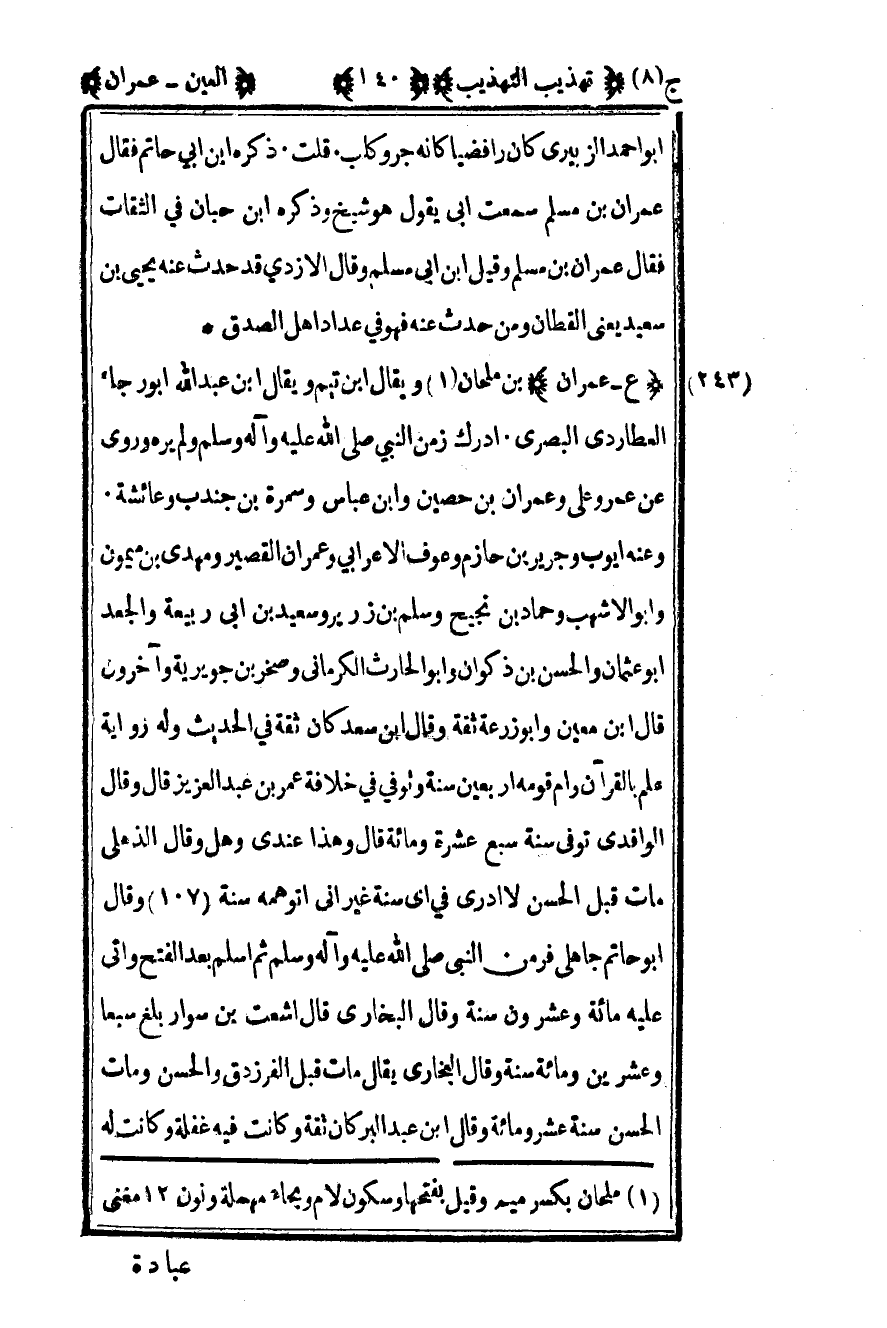 ج(٨) ﴿ تهذيب التهذيب ﴾ ﴿ ١٤٠ ﴾ ﴿ العين - عمران ﴾
ابو احمد الزبيرى كان رافضيا كانه جرو كلب ٠ قلت ٠ ذكره ابن ابي حاتم فقال
عمران بن مسلم سمعت ابى يقول هو شيخ وذكره ابن حبان في الثقات
فقال عمران بن مسلم وقيل ابن ابى مسلم وقال الازدي قد حدث عنه يحيى بن
سعيد يعنى القطان ومن حدث عنه فهو في عداد اهل الصدق *
(٢٤٣) ﴿ ع - عمران ﴾ بن ملحان (١) ويقال ابن تيم ويقال ابن عبدالله ابو رجاء
العطاردى البصرى ٠ ادرك زمن النبي صلى الله عليه وآله وسلم ولم يره وروى
عن عمر وعلى وعمران بن حصين وابن عباس وسمرة بن جندب وعائشة ٠
وعنه ايوب وجرير بن حازم وعوف الاعرابي وعمران القصير ومهدى بن ميمون
وابو الاشهب وحماد بن نجيح وسلم بن زرير وسعيد بن ابى ربيعة والجعد
ابو عثمان والحسن بن ذكوان وابو الحارث الكرمانى وصخر بن جويرية وآخرون
قال ابن معين وابو زرعة ثقة وقال ابن سعد كان ثقة في الحديث وله رواية
علم بالقرآن وام قومه اربعين سنة وتوفي في خلافة عمر بن عبد العزيز قال وقال
الواقدى توفى سنة سبع عشرة ومائة قال وهذا عندى وهل وقال الذهلى
مات قبل الحسن لا ادرى في اى سنة غير انى اتوهمه سنة (١٠٧) وقال
ابو حاتم جاهلى فر من النبى صلى الله عليه وآله وسلم ثم اسلم بعد الفتح واتى
عليه مائة وعشرون سنة وقال البخارى قال اشعت بن سوار بلغ سبعا
وعشرين ومائة سنة وقال البخارى يقال مات قبل الفرزدق والحسن ومات
الحسن سنة عشر ومائة وقال ابن عبد البر كان ثقة وكانت فيه غفلة وكانت له
(١) ملحان بكسر ميم وقيل بفتحها وسكون لام وبحاء مهملة ونون ١٢ مغنى
عبادة